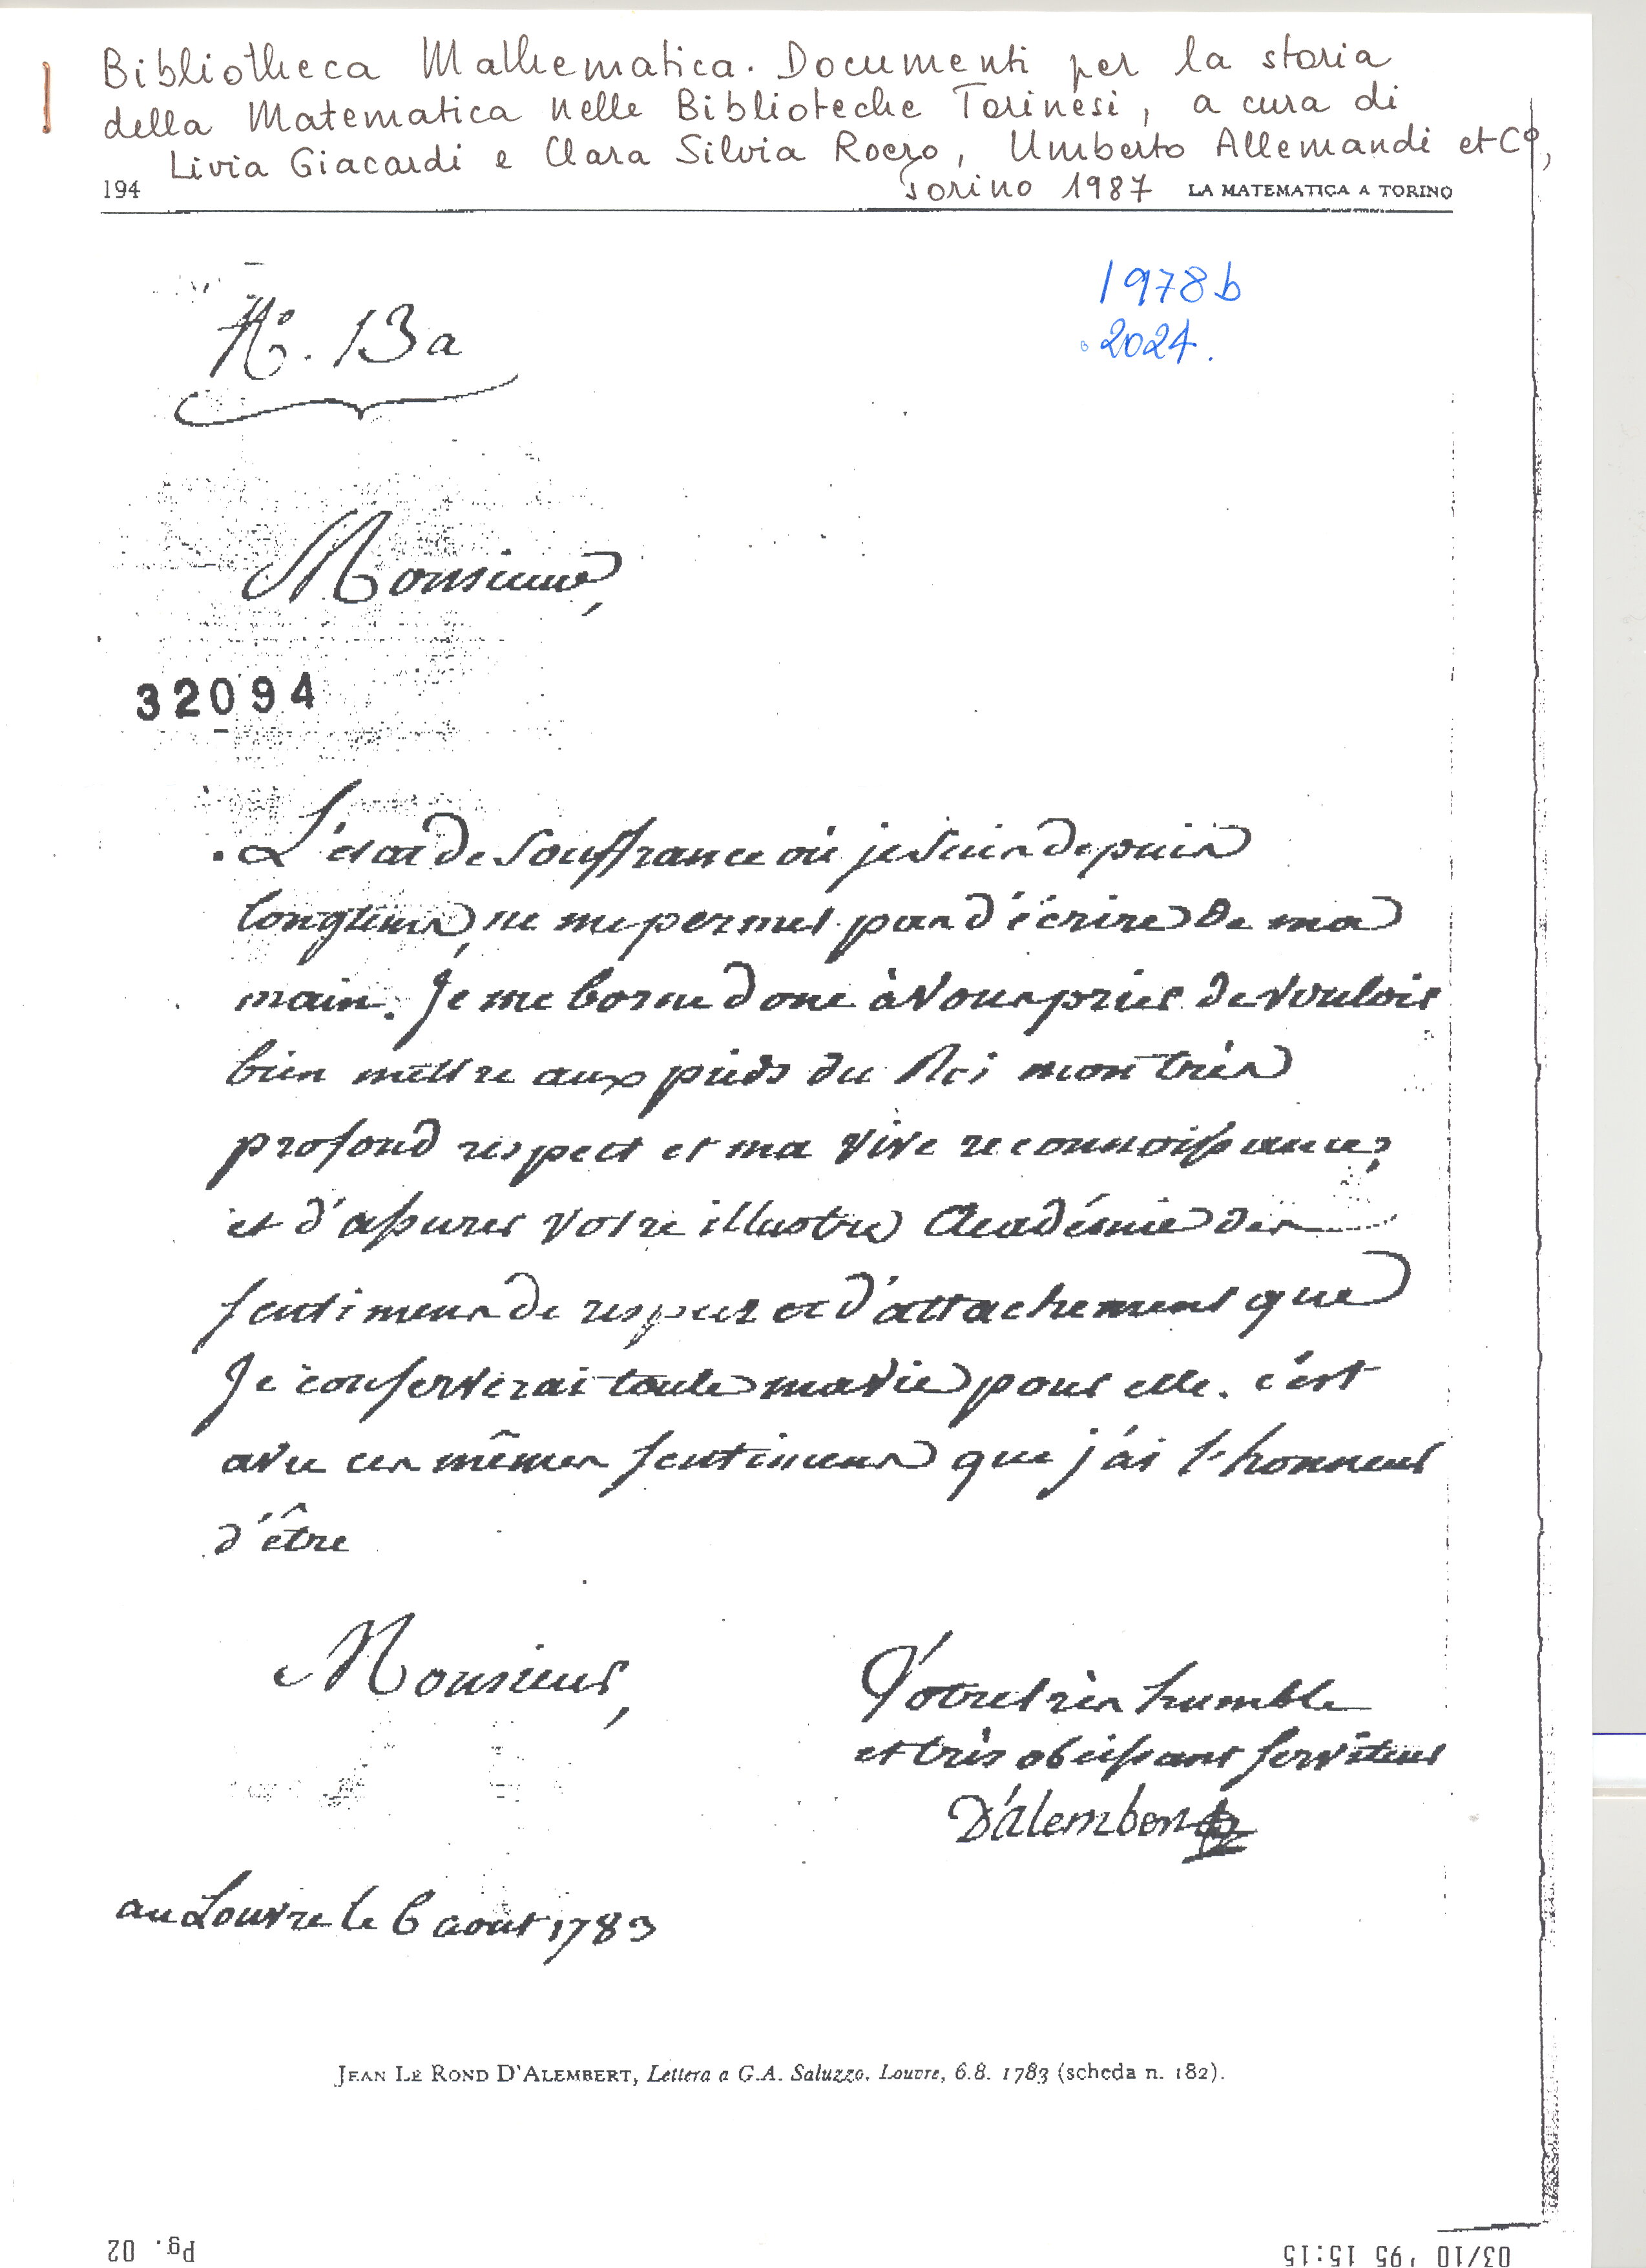 Bibliotheca Mathematica. Documenti per la storia
della Matematica nelle Biblioteche Torinesi, a cura di
Livia Giacardi e Clara Silvia Roero, Umberto Allemandi et Cº,
Torino 1987
194
LA MATEMATICA A TORINO
1978 b
2024.
Nº. 13a
Monsieur,
32094
L'état de souffrance où je suis depuis
longtems, ne me permet pas d'écrire de ma
main. Je me borne donc à vous prier de vouloir
bien mettre aux pieds du Roi mon très
profond respect et ma vive reconnoissance,
et d'assurer votre illustre Académie des
sentimens de respect et d'attachement que
Je conserverai toute ma vie pour elle. c'est
avec ces mêmes sentimens que j'ai l'honneur
d'être
Monsieur,
Votre très humble
et très obéissant serviteur
D'Alembert
au Louvre le 6 août 1783
JEAN LE ROND D'ALEMBERT, Lettera a G.A. Saluzzo, Louvre, 6.8. 1783 (scheda n. 182).
03/10 '95 15:15
Pg. 02